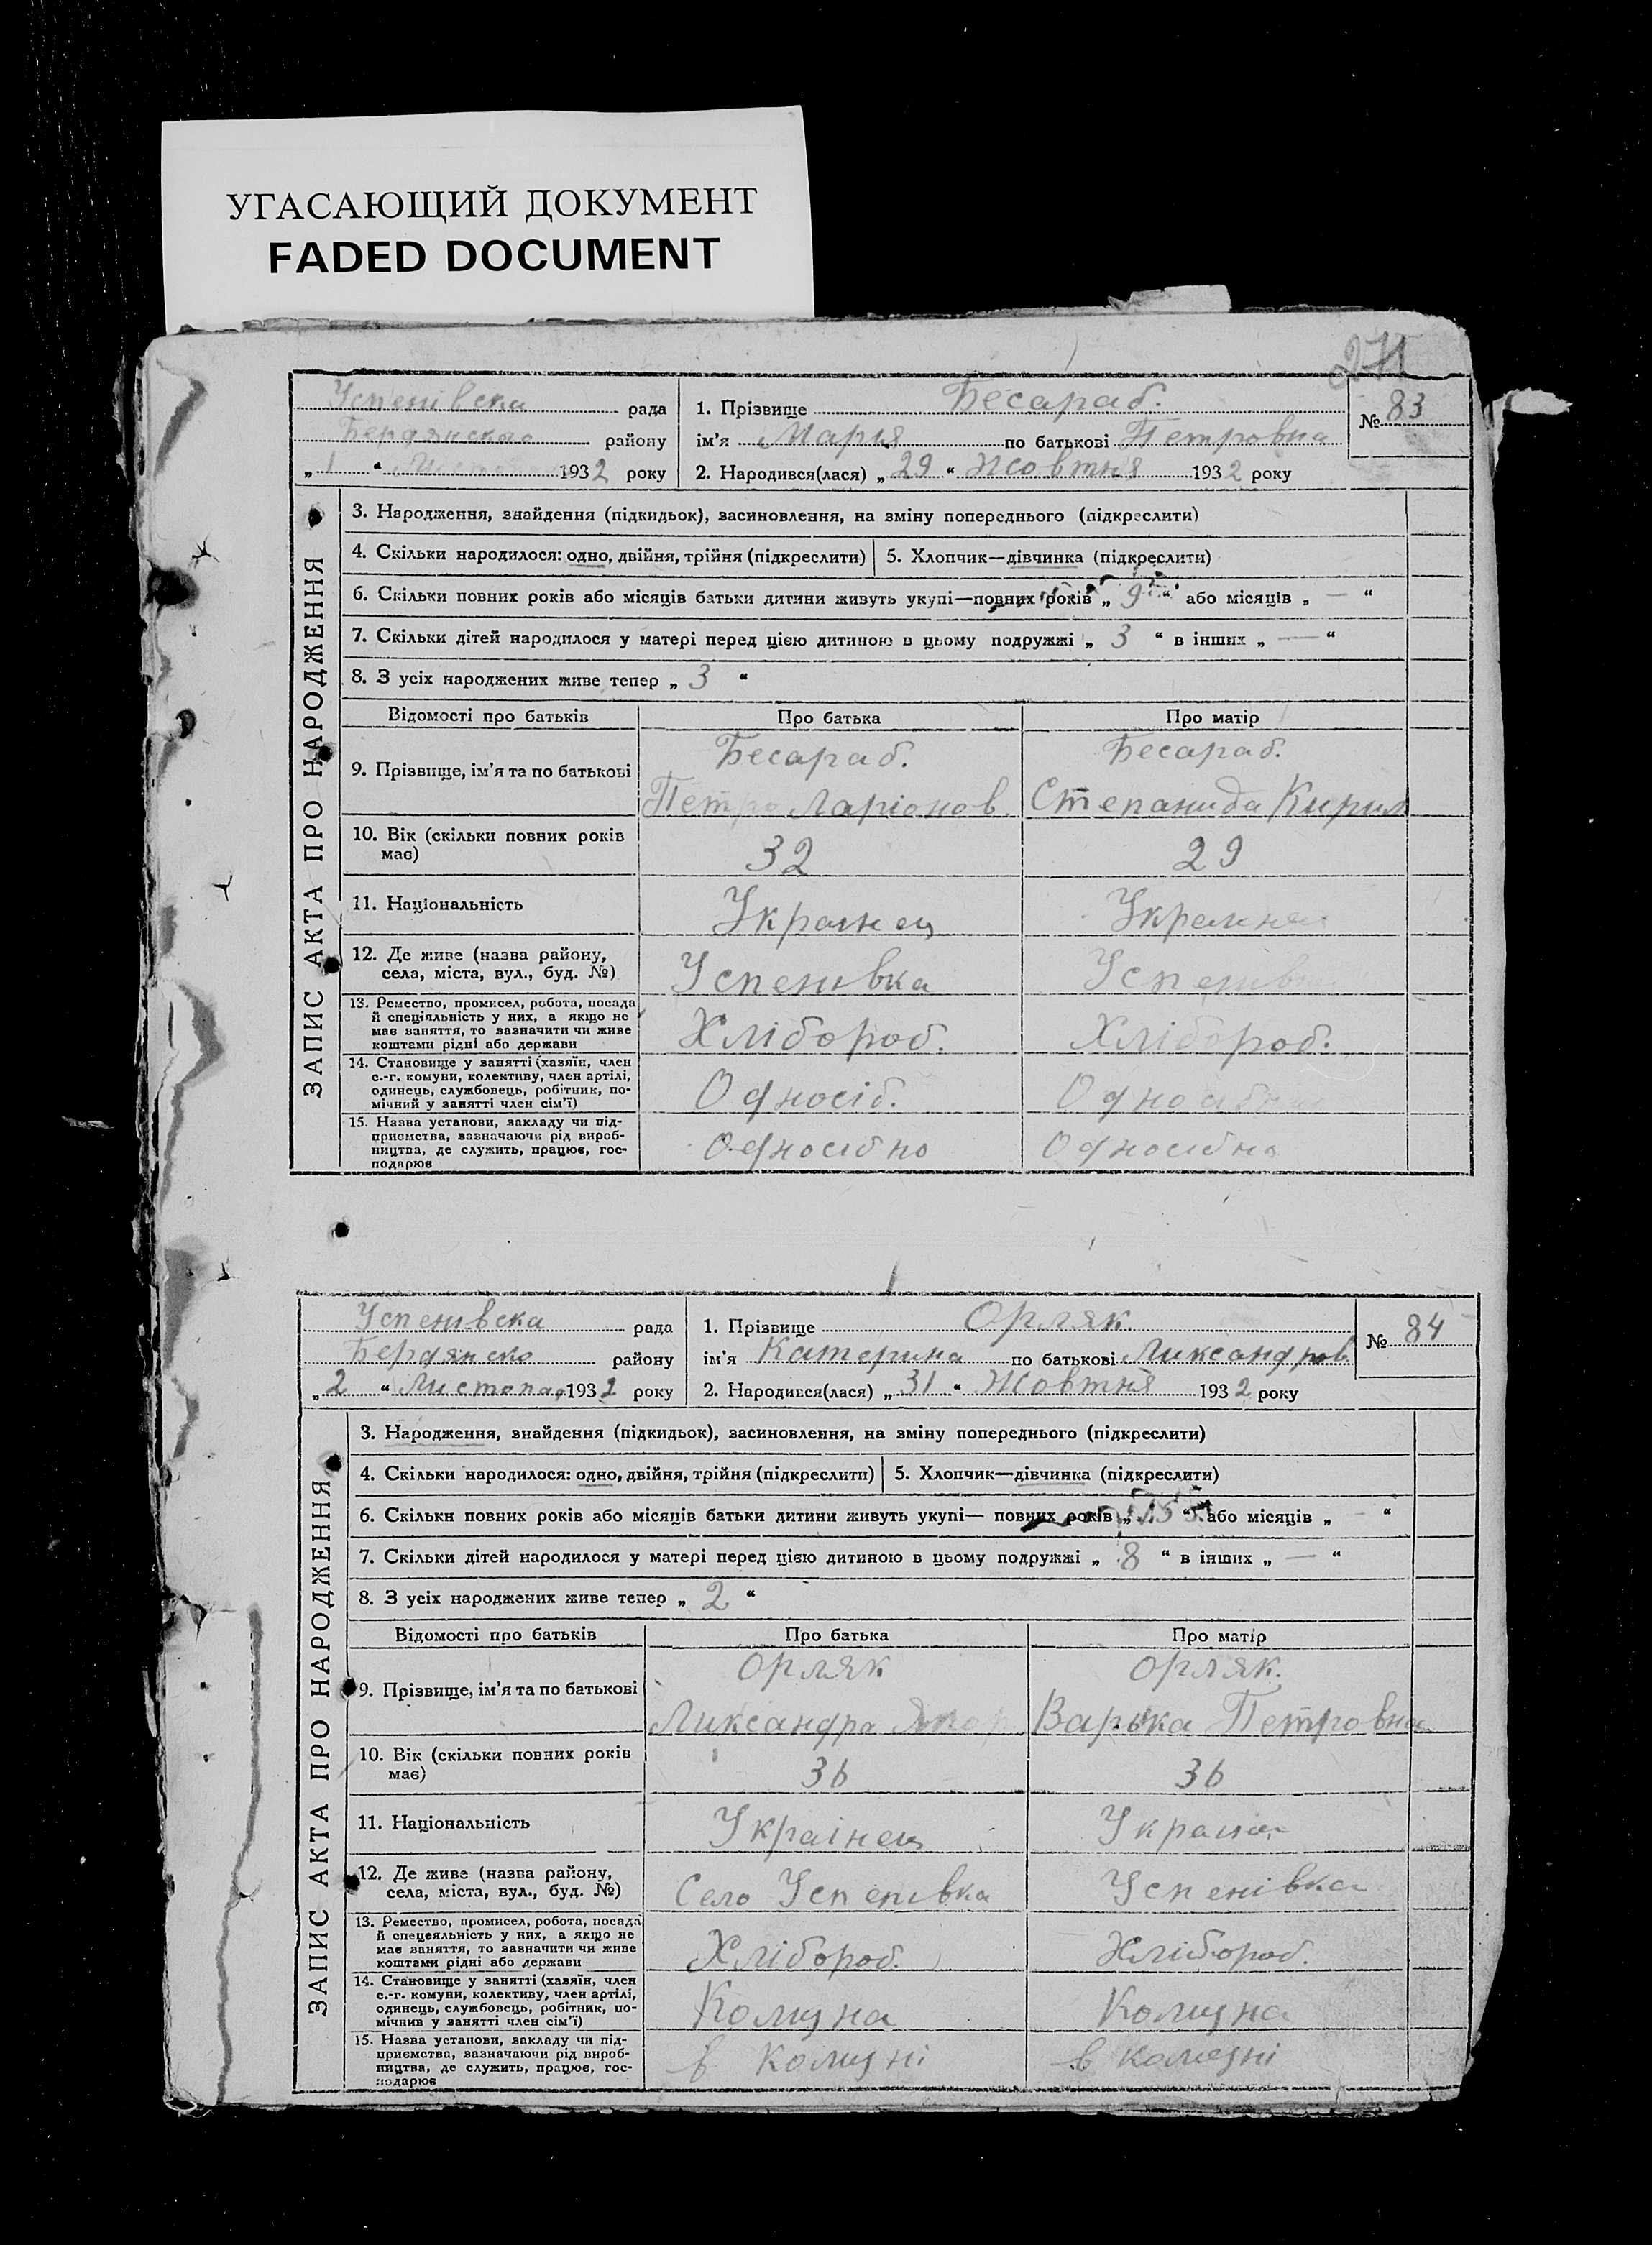 УГАСАЮЩИЙ ДОКУМЕНТ
FADED DOCUMENT
271
Успенівска рада
Бердянского району
„ 1 “ Листопад 1932 року
1. Прізвище Бесараб.
ім'я Мария по батькові Петровна
2. Народився(лася) „ 29 “ Жовтня 1932 року
№ 83
ЗАПИС АКТА ПРО НАРОДЖЕННЯ
3. Народження, знайдення (підкидьок), засиновлення, на зміну попереднього (підкреслити)
4. Скільки народилося: одно, двійня, трійня (підкреслити) 5. Хлопчик—дівчинка (підкреслити)
6. Скільки повних років або місяців батьки дитини живуть укупі—повних років „ 9 “ або місяців „ — “
7. Скільки дітей народилося у матері перед цією дитиною в цьому подружжі „ 3 “ в інших „ — “
8. З усіх народжених живе тепер „ 3 “
Відомості про батьків Про батька Про матір
9. Прізвище, ім'я та по батькові
Бесараб. Бесараб.
Петро Ларіонов. Степанида Кирил
10. Вік (скільки повних років
має)
32 29
11. Національність Украинец
12. Де живе (назва району,
села, міста, вул., буд. №)
Успенівка Успенівка
13. Ремество, промисел, робота, посада
й спеціяльність у них, а якщо не
має заняття, то зазначити чи живе
коштами рідні або держави
Хлібороб. Хлібороб.
14. Становище у занятті (хазяїн, член
с.-г. комуни, колективу, член артілі,
одинець, службовець, робітник, по-
мічний у занятті член сім'ї)
Односіб.
15. Назва установи, закладу чи під-
приємства, зазначаючи рід вироб-
ництва, де служить, працює, гос-
подарює
Односібно Односібна
Успенівска рада
Бердянско району
„ 2 “ Листопад 1932 року
1. Прізвище Орляк.
ім'я Катерина по батькові Ликсандров
2. Народився(лася) „ 31 “ Жовтня 1932 року
№ 84
ЗАПИС АКТА ПРО НАРОДЖЕННЯ
3. Народження, знайдення (підкидьок), засиновлення, на зміну попереднього (підкреслити)
4. Скільки народилося: одно, двійня, трійня (підкреслити) 5. Хлопчик—дівчинка (підкреслити)
6. Скільки повних років або місяців батьки дитини живуть укупі— повних років „ “ або місяців „ — “
7. Скільки дітей народилося у матері перед цією дитиною в цьому подружжі „ 8 “ в інших „ — “
8. З усіх народжених живе тепер „ 2 “
Відомості про батьків Про батька Про матір
9. Прізвище, ім'я та по батькові
Орляк Орляк.
Ликсандра Варька Петровна
10. Вік (скільки повних років
має)
36 36
11. Національність Українец
12. Де живе (назва району,
села, міста, вул., буд. №)
Село Успенівка Успенівка
13. Ремество, промисел, робота, посада
й спецеяльність у них, а якщо не
має заняття, то зазначити чи живе
коштами рідні або держави
Хлібороб. Хлібороб.
14. Становище у занятті (хазяїн, член
с.-г. комуни, колективу, член артілі,
одинець, службовець, робітник, по-
мічник у занятті член сім'ї)
Комуна Комуна
15. Назва установи, закладу чи під-
приємства, зазначаючи рід вироб-
ництва, де служить, працює, гос-
подарює
в комуні в комуні